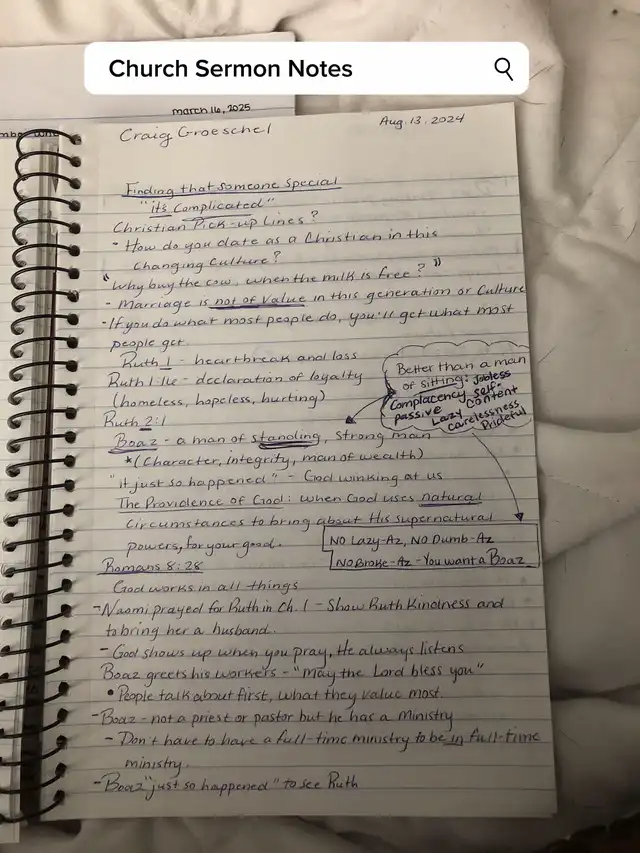 Church Sermon Notes
march 16, 2025
Craig Groeschel
Aug. 13, 2024
Finding that someone special
"it's Complicated"
Christian Pick-up Lines?
- How do you date as a Christian in this
Changing Culture?
"Why buy the cow, when the milk is free?"
- Marriage is not of value in this generation or Culture
- If you do what most people do, you'll get what most
people get.
Ruth 1 - heartbreak and loss
Ruth 1:16 - declaration of loyalty
(homeless, hopeless, hurting)
Ruth 2:1
Boaz - a man of standing, strong man
*(Character, integrity, man of wealth)
Better than a man
of sitting: Jobless
Complacency self-
passive content
Lazy
carelessness
Prideful
"it just so happened" - God winking at us
The Providence of God: when God uses natural
circumstances to bring about His supernatural
powers, for your good.
NO Lazy-Az, NO Dumb-Az
NO Broke-Az - You want a Boaz
Romans 8:28
God works in all things
- Naomi prayed for Ruth in Ch. 1 - Show Ruth Kindness and
to bring her a husband.
- God shows up when you pray, He always listens
Boaz greets his workers - "may the Lord bless you"
• People talk about first, what they value most.
- Boaz - not a priest or pastor but he has a ministry
- Don't have to have a full-time ministry to be in full-time
ministry.
- Boaz "just so happened" to see Ruth